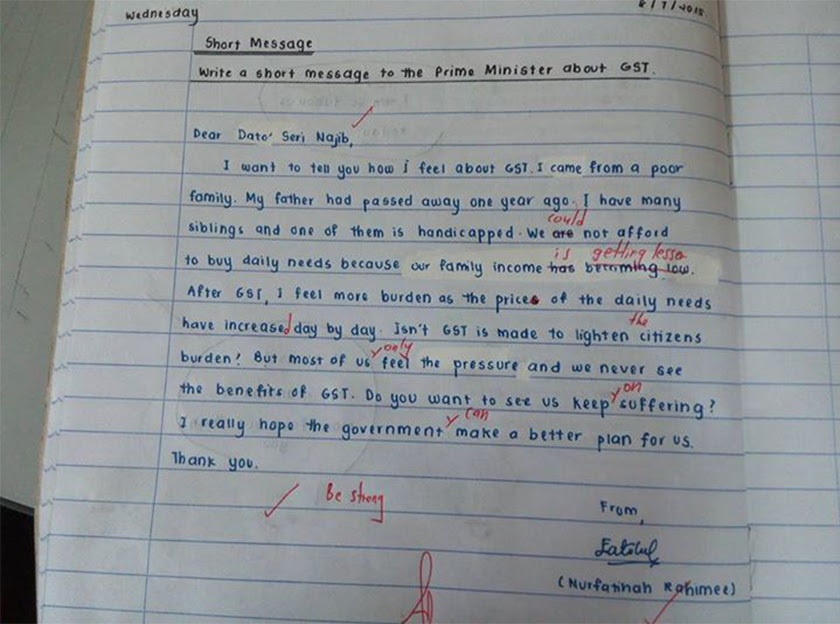 Wednesday
8/7/2015.
Short Message
Write a short message to the Prime Minister about GST.
Dear Dato' Seri Najib,
I want to tell you how i feel about GST. I came from a poor
family. My father had passed away one year ago. I have many
could
siblings and one of them is handicapped. We are not afford
is getting lesser
to buy daily needs because our family income has becoming low.
After GST, I feel more burden as the prices of the daily needs
the
have increased day by day. Isn't GST is made to lighten citizens
only
burden? But most of us feel the pressure and we never see
on
the benefits of GST. Do you want to see us keep suffering?
can
I really hope the government make a better plan for us.
Thank you.
Be strong
From,
(Nurfatihah Rahimee)